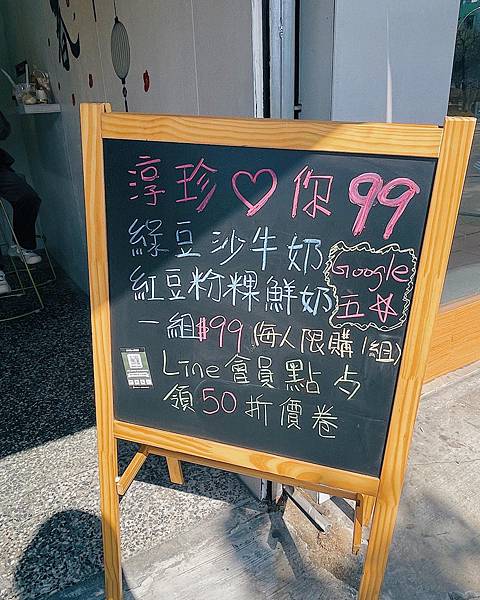 淳珍♡你99
綠豆沙牛奶
紅豆粉粿鮮奶
Google
五☆
一組$99(每人限購1組)
Line會員點占
領50折價卷